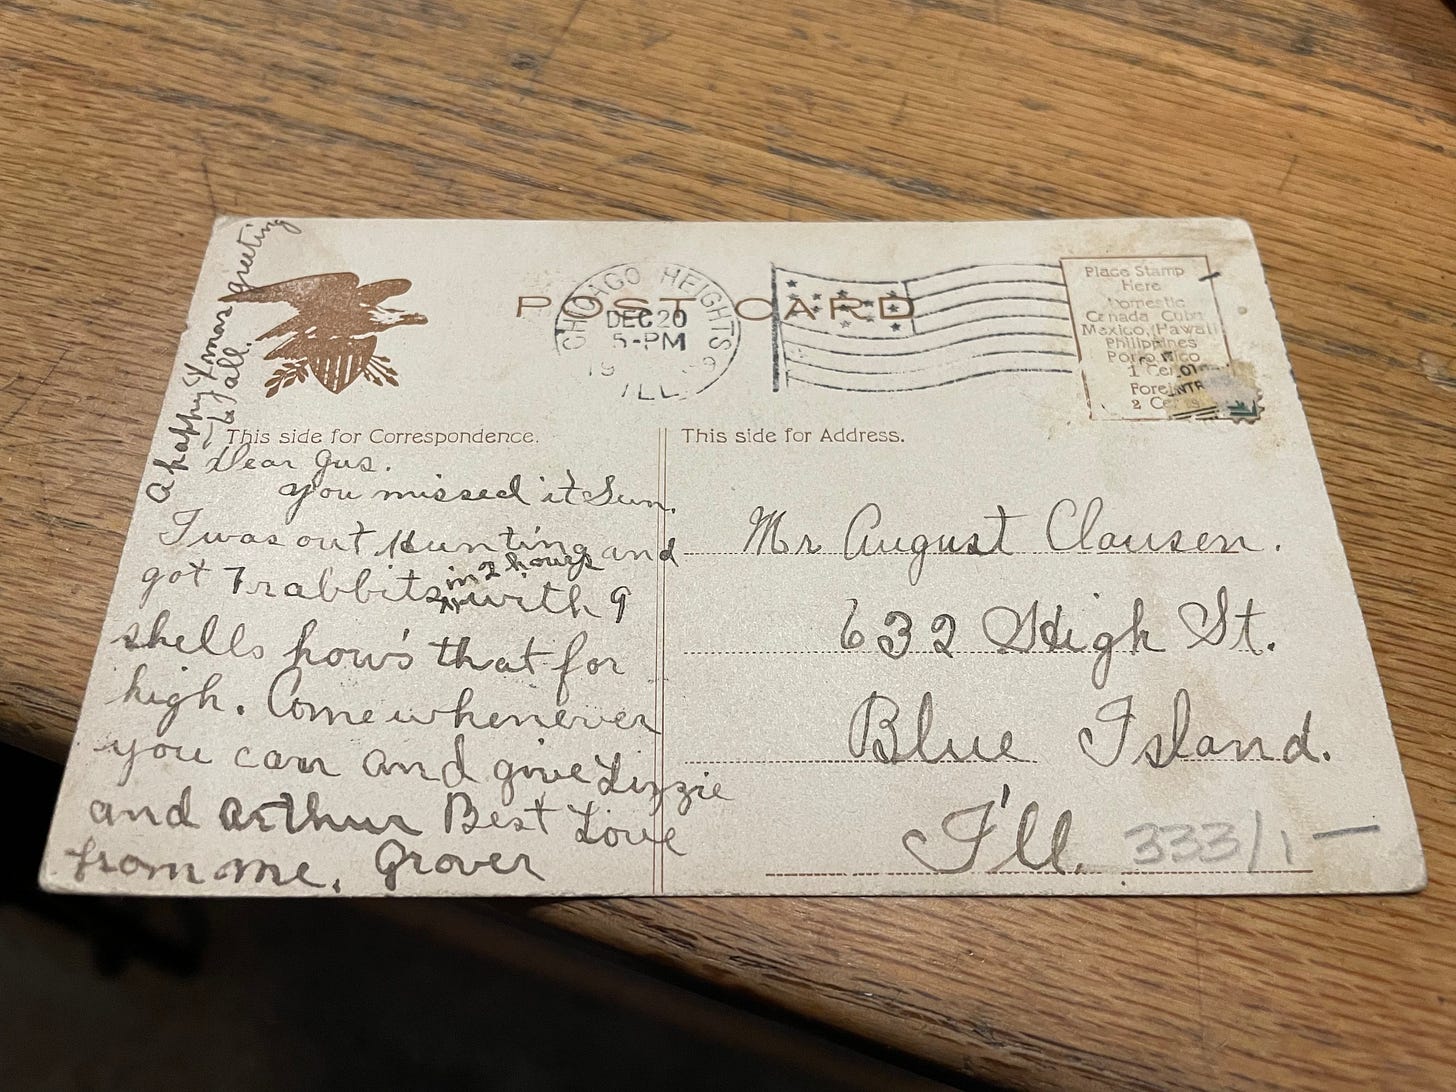 A happy Xmas greeting
to all.
POST CARD
CHICAGO HEIGHTS
DEC 20
5-PM
19
ILL.
Place Stamp
Here
Domestic
Canada Cuba
Mexico, (Hawaii
Philippines
Porto Rico
1 Cent
Foreign
2 Cents
This side for Correspondence.
This side for Address.
Dear Gus.
you missed it Sun.
I was out Hunting and
got 7 rabbits in 2 hours with 9
shells how's that for
high. Come whenever
you can and give Lizzie
and Arthur Best Love
from me. Grover
Mr August Clausen.
632 High St.
Blue Island.
I'll.
333/1-